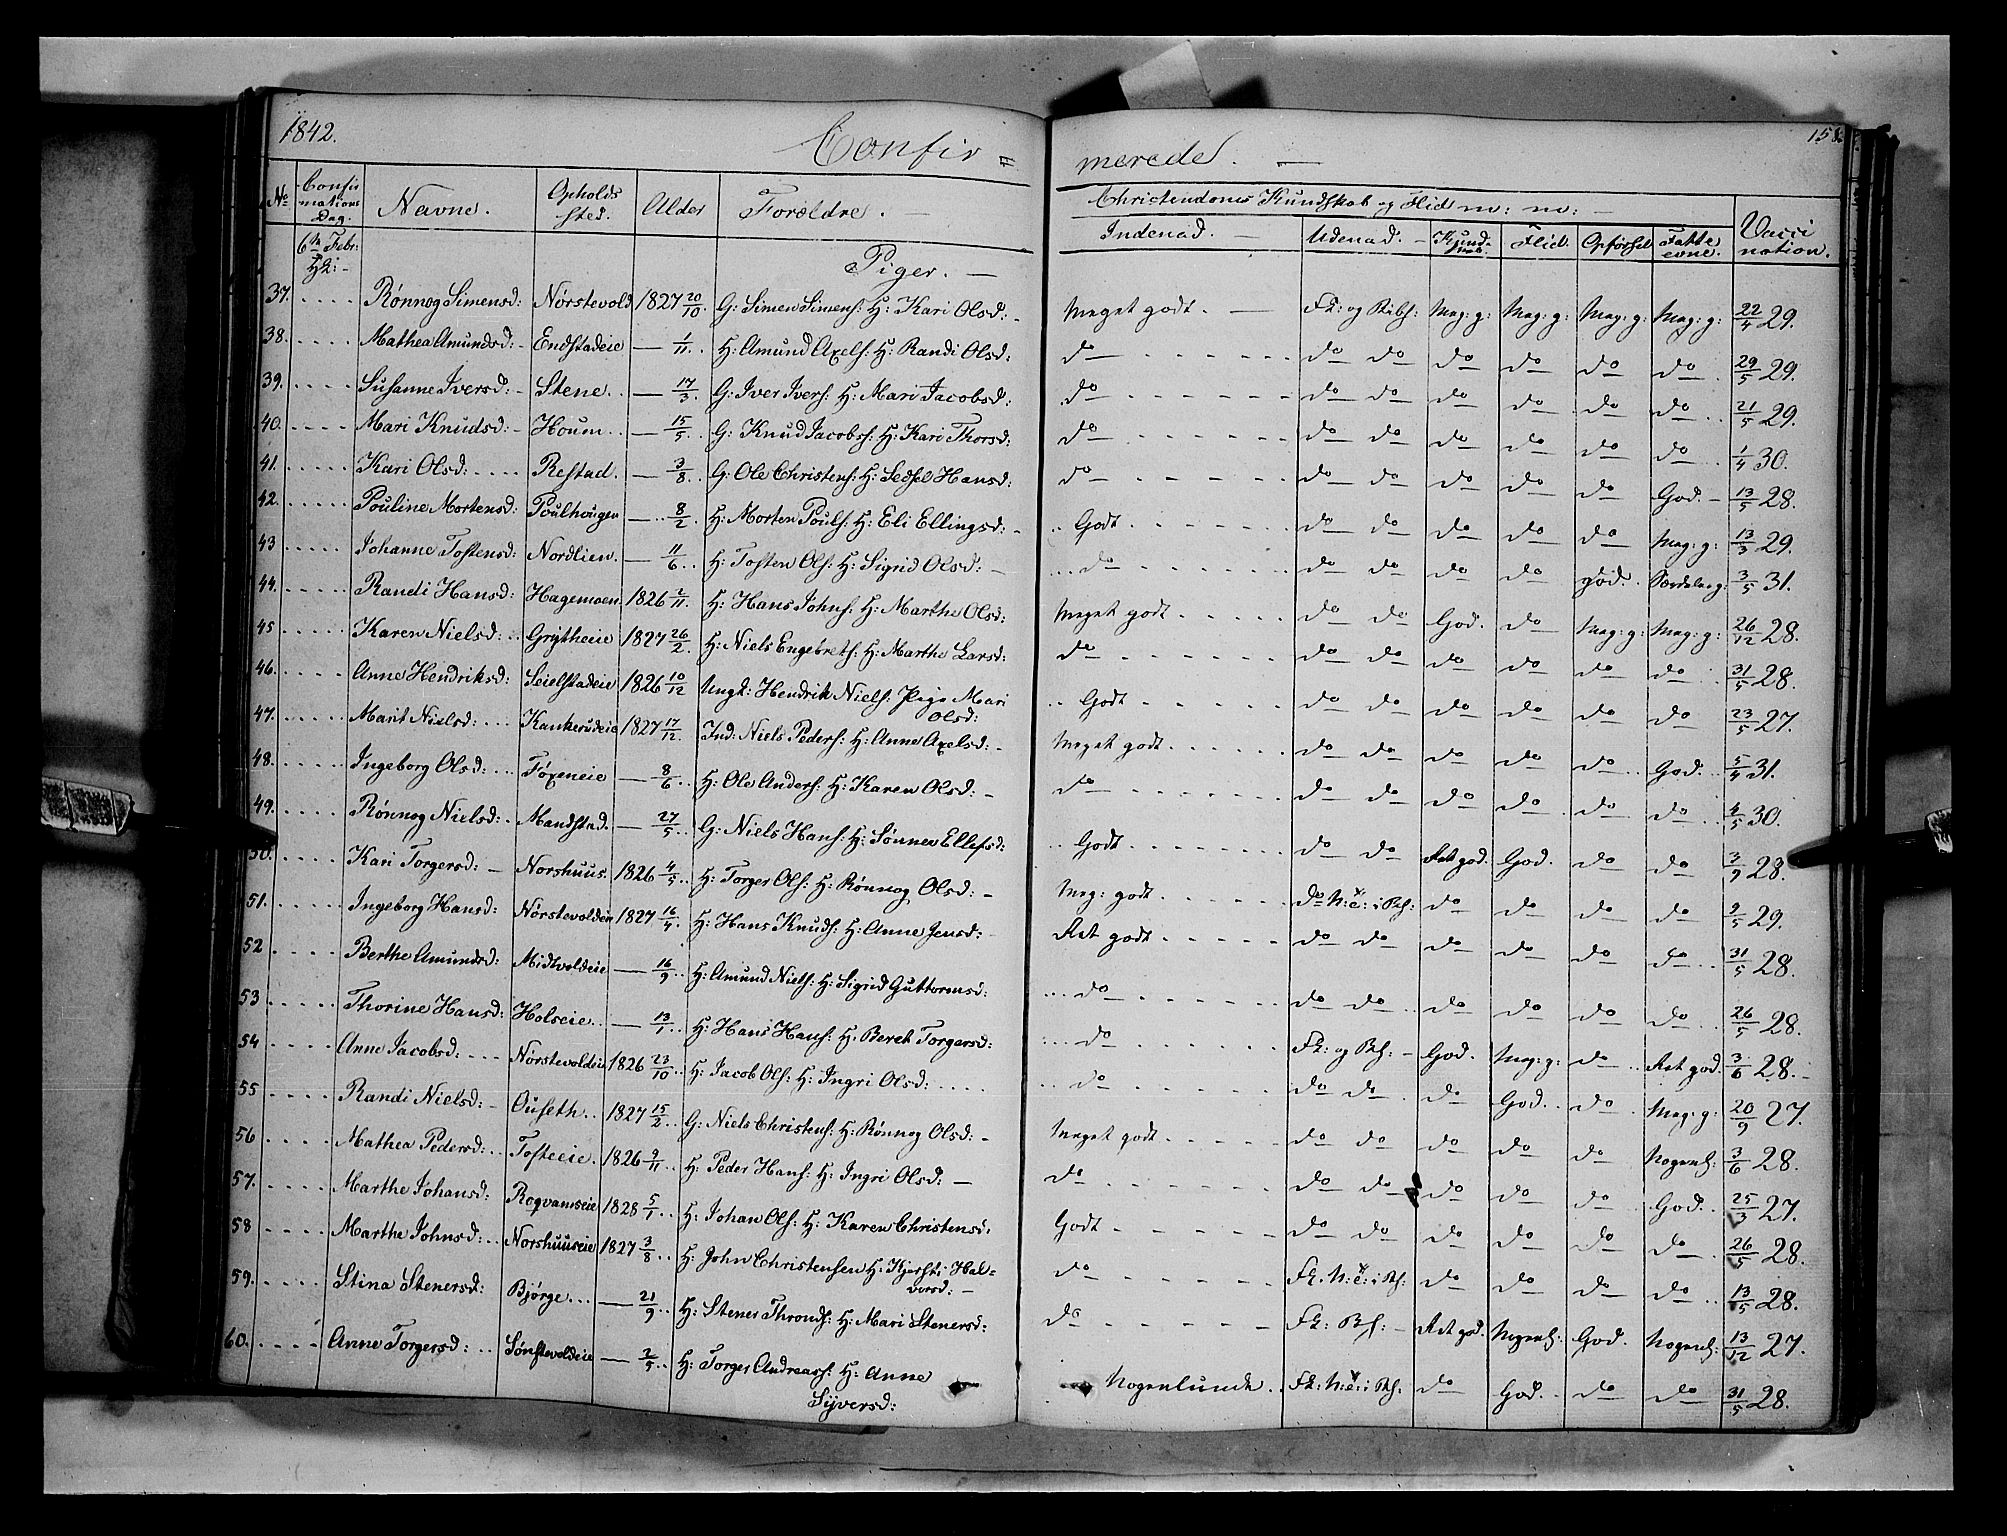 1842. Confir = merede. — 158
No Confirmations Dag. Navne. Opholds sted. Alder Forældre. — Christendoms Kundskab og Flid m: m: — Vaccination.
Indenad. — Udenad. — Kundskab. Flid. Opførsel Fatte evne.
Piger. —
37. . . . . Rønnog Simensd: Nørstevold 1827 20/10. G: Simen Simens: H: Kari Olsd: - Meget godt. — Fk: og Bibs: Meg: g: Meg: g: Meg: g: Meg: g: 22/4 29.
38. . . . . Mathea Amundsd: - Endstadeie — 1/11. . H: Amund Axels: H: Randi Olsd: do do do do do do do . 29/5 29.
39. . . . . Susanne Iversd: - Stene. . — 17/3. G: Iver Ivers: H: Mari Jacobsd: do do do do do do do . 21/5 29.
40. . . . . Mari Knudsd: - Houm . . — 15/5. . G: Knud Jacobs: H: Kari Thorsd: do do do do do do do . . 1/4 30.
41. . . . . Kari Olsd: . . . . Restad. — 3/8. . G: Ole Christens: H: Sedsel Hansd: do do do do do do God. - 13/5 28.
42. . . . . Pouline Mortensd: Poulhougen — 8/2. . H: Morten Pouls: H: Eli Ellingsd: - Godt do do do do do Meg: g: 13/3 29.
43 . . . . . Johanne Tostensd: Nordlien. — 11/6. . H: Tosten Ols: H: Sigrid Olsd: — do do do do do god. 3/5 31.
44. . . . . Randi Hansd: Hagemoen 1826 2/11. H: Hans Johns: H: Marthe Olsd: Meget godt do do God. do Meg: g: Meg: g: 26/12 28.
45 . . . . . Karen Nielsd: . . Grytheeie 1827 26/2. H: Niels Engebrets: H: Marthe Larsd: do do do do do do do . . 31/5 28.
46. . . . . Anne Hendriksd: Seielstadeie 1826 10/12 Ungk: Hendrik Niels: Pige Mari Olsd: Godt do do do do do do 23/5 27.
47. . . . . Marit Nielsd: . . . Kankerudeie 1827 17/12. Ind: Niels Peders: H: Anne Axelsd: - Meget godt do do do do do . . God. . . 5/4 31.
48. . . . . Ingeborg Olsd: . . . Føxeneie — 8/6. . . H: Ole Anders: H: Karen Olsd: - do do do do do do do . . 4/5 30.
49. . . . . Rønnog Nielsd: . . Mandstad. — 27/5. . G: Niels Hans: H: Sønnev Ellefsd: Godt do do Ret god. God. do do 3/9 28.
50. . . . . Kari Torgersd: — Norshuus. 1826 4/5. . H: Torger Ols: H: Rønnog Olsd: - Meg: godt do N: e: i Bs: do do do do 9/5 29.
51. . . . . Ingeborg Hansd: Nørstevoldeie 1827 16/4. H: Hans Knuds: H: Anne Jensd: - Ret godt do do do do do do . . 31/5 28.
52 . . . . Berthe Amundsd: Midtvoldeie — 16/9. . H: Amund Niels: H: Sigrid Guttormsd: do do do do do do do . . 26/5 28.
53 . . . . Thorine Hansd: Holseie. . — 13/1. . H: Hans Hans: H: Beret Torgersd: do Fk: og Bs: - God. Meg: g: do . . Ret god. 3/6 28. -
54 . . . . Anne Jacobsd: . . . Nørstevoldeie 1826 23/10. H: Jacob Ols: H: Ingri Olsd: . . . . do do do do God. . do Meg: g: 20/9 27.
55 . . . . Randi Nielsd: - Ouseth. . 1827 15/2. . G: Niels Christens: H: Rønnog Olsd: - Meget godt do do do do do Nogenl: 3/6 28.
56 . . . . Mathea Pedersd: . . Tosteeie. 1826 9/11. . H: Peder Hans: H: Ingri Olsd: — do do do do do do God. . 25/3 27.
57. . . . . Marthe Johansd: Rogvamseie 1828 5/1. . H: Johan Ols: H: Karen Christensd: Godt do do do do do do . . 26/5 28.
58 . . . . Marthe Johnsd: . . Norshuuseie 1827 3/8. . H: John Christensen H: Kjersti Halvorsd: — do Fk. N: e: i Bs: do do do do . . 13/5 28.
59. . . . . Stina Stenersd: Bjørge . . . — 21/9. . H: Stener Thronds: H: Mari Stenersd: do Fk: Bs: - Ret god. Nogenl: God. Nogenl: 13/12 27.
60. . . . . Anne Torgersd: . . Sønstevoldeie — 2/5. . H: Torger Andreass: H: Anne Syversd: Nogenlunde . . Fk: N: e: i Bs: do God. . do do 31/5 28.